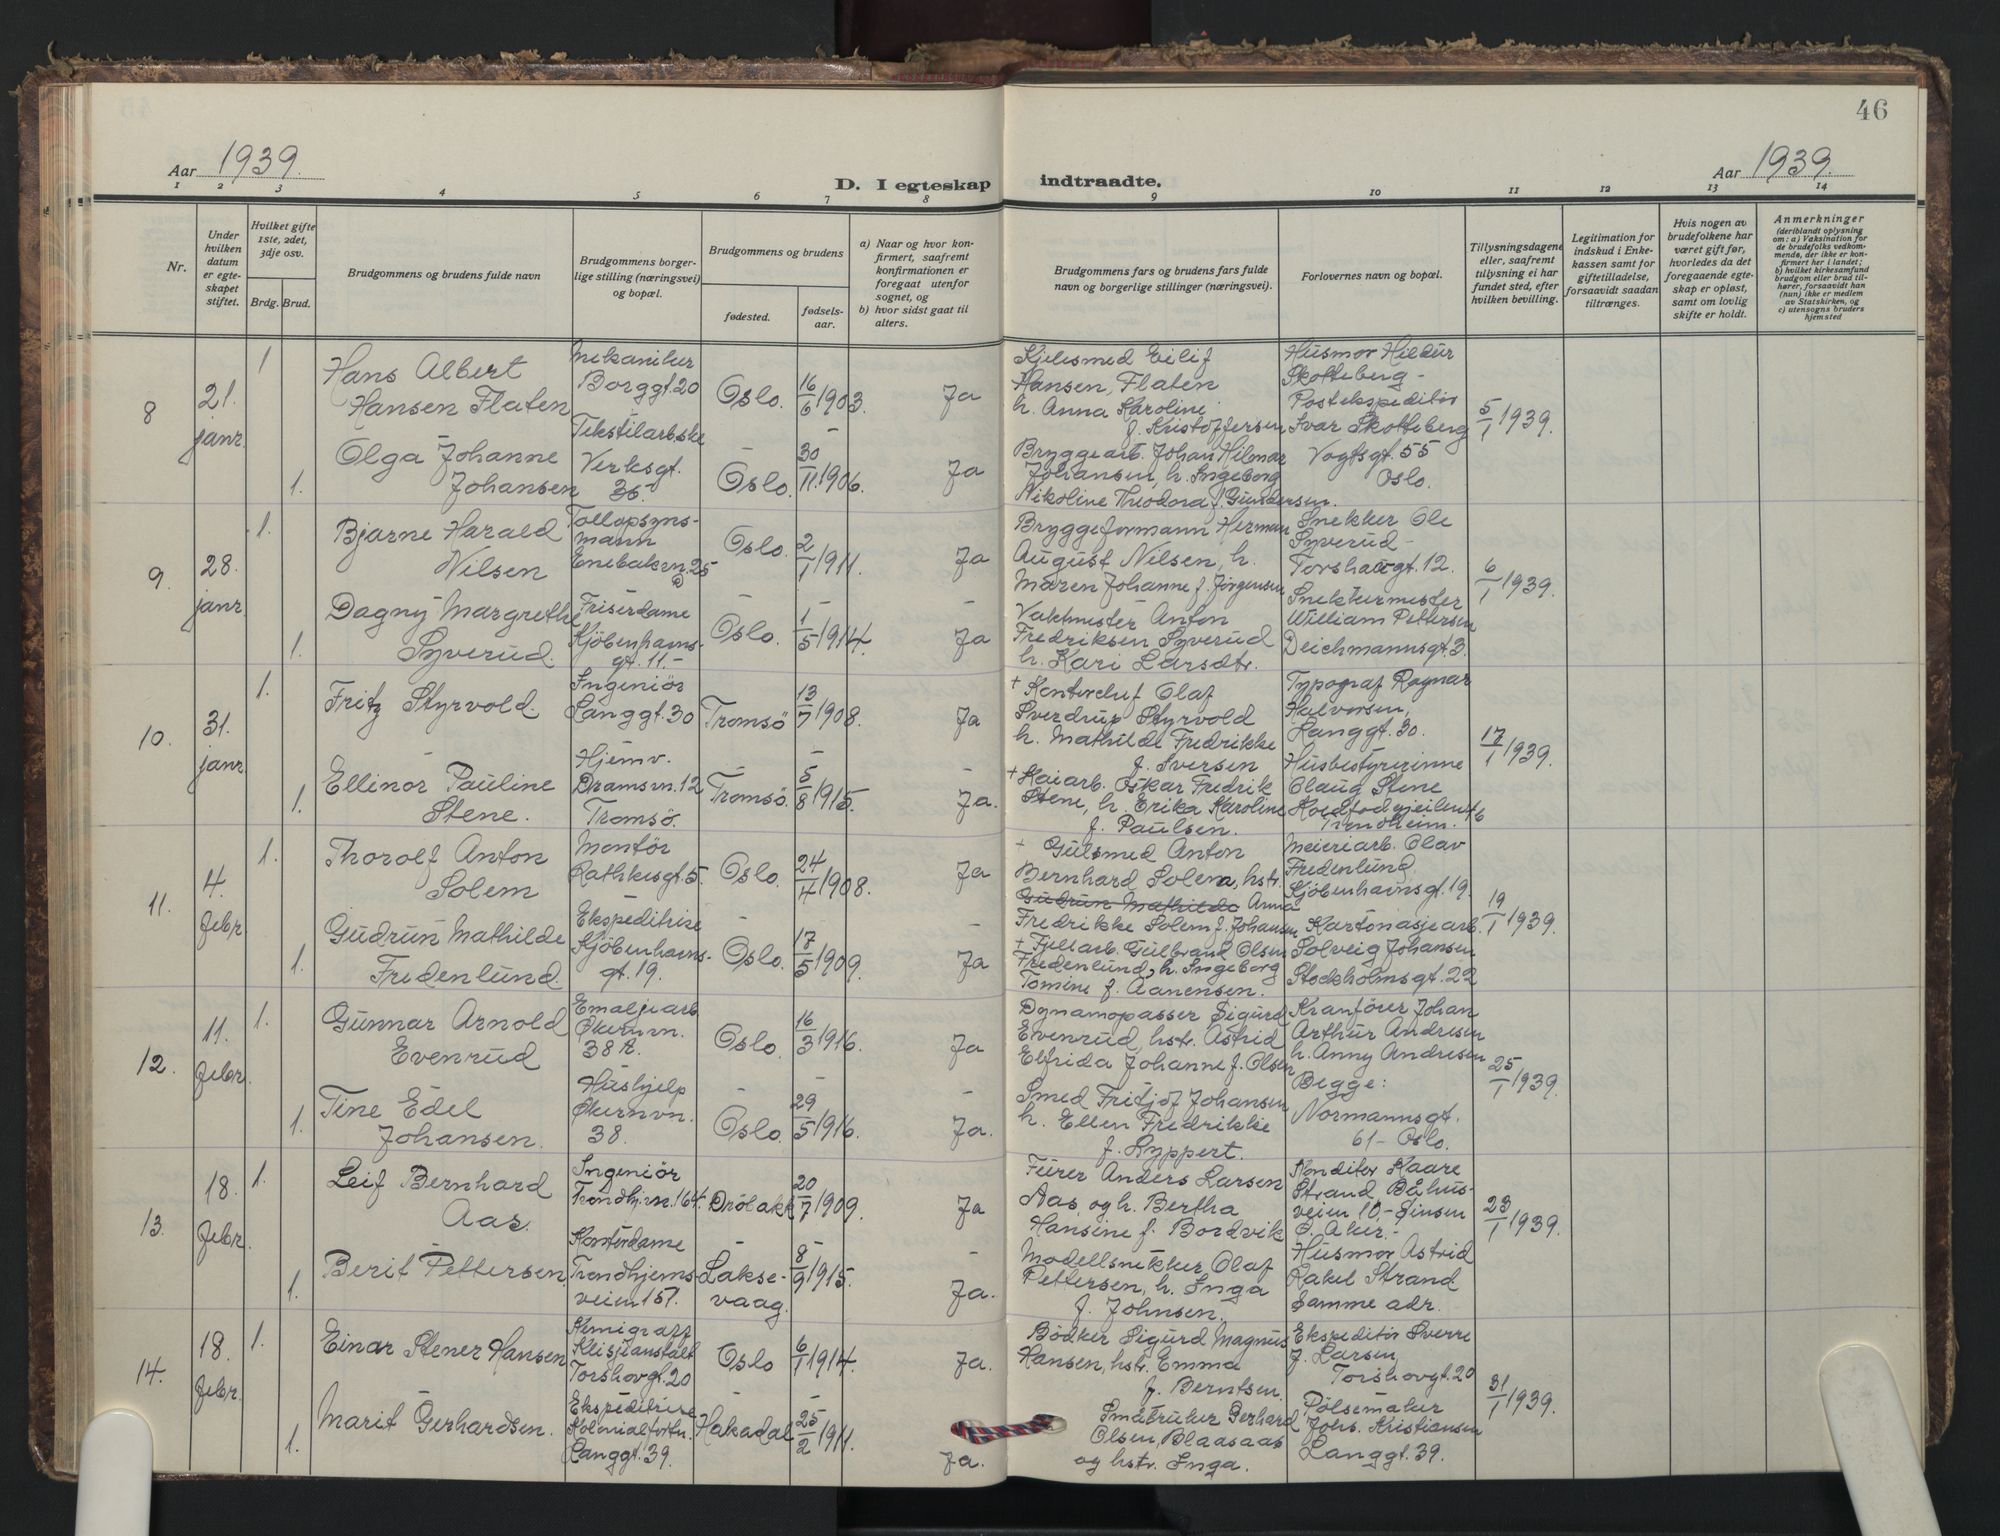 46
Aar 1939.
D. I egteskap indtraadte.
Aar 1939.
1 2 3 4 5 6 7 8 9 10 11 12 13 14
Nr.
Under hvilken datum er egte-skapet stiftet.
Hvilket gifte 1ste, 2det, 3dje osv.
Brdg. Brud.
Brudgommens og brudens fulde navn
Brudgommens borger-lige stilling (næringsvei) og bopæl.
Brudgommens og brudens
fødested.
fødsels-aar.
a) Naar og hvor kon-firmert, saafremt konfirmationen er foregaat utenfor sognet, og
b) hvor sidst gaat til alters.
Brudgommens fars og brudens fars fulde navn og borgerlige stillinger (næringsvei).
Forlovernes navn og bopæl.
Tillysningsdagene eller, saafremt tillysning ei har fundet sted, efter hvilken bevilling.
Legitimation for indskud i Enke-kassen samt for giftetilladelse, forsaavidt saadan tiltrænges.
Hvis nogen av brudefolkene har været gift før, hvorledes da det foregaaende egte-skap er opløst, samt om lovlig skifte er holdt.
Anmerkninger
(deriblandt oplysning om: a) Vaksination for de brudefolks vedkom-mende, der ikke er kon-firmert her i landet; b) hvilket kirkesamfund brudgom eller brud til-hører, forsaavidt han (hun) ikke er medlem av Statskirken, og c) utensogns bruders hjemsted
8
21. janr.
1
Hans Albert
Hansen Flaten
Mekaniker
Borggt. 20
Oslo.
16/6 1903.
Ja
Kjelesmed Eilif
Hansen, Flaten
h. Anna Karoline
f. Kristoffersen
Husmor Hildur
Skotteberg -
Postekspeditør
Ivar Skotteberg
Vogtsgt. 55
Oslo.
5/1 1939.
1.
Olga Johanne
Johansen
Tekstilarbske
Verksgt.
36.
Oslo.
30/11. 1906.
Ja
Bryggearb. Johan Hilmar
Johansen, h. Ingeborg
Nikoline Theodora f. Gundersen.
9.
28. janr.
1.
Bjarne Harald
Nilsen
Tollopsyns-
mann
Enebakvn. 25
Oslo.
2/1 1911.
Ja
Bryggeformann Herman
August Nilsen, h.
Maren Johanne f. Jørgensen
Snekker Ole
Syverud -
Torshaugt. 12.
Snekkermester
William Pettersen
Deichmannsgt. 3.
6/1 1939.
1.
Dagny Margrethe
Syverud.
Friserdame
Kjöbenhavns-
gt. 11.-
Oslo.
1/5 1914.
Ja
Vaktmester Anton
Fredriksen Syverud
h. Kari Larsdtr.
10.
31. janr.
1.
Fritz Styrvold.
Ingeniör
Langgt. 30
Tromsö
13/7 1908.
Ja
+ Kontorchef Olaf
Sverdrup Styrvold
h. Mathilde Fredrikke
f. Iversen
Typograf Ragnar
Halvorsen,
Langgt. 30.
Husbestyrerinne
Olaug Stene
Trondheim.
17/1 1939.
1.
Ellinor Pauline
Stene.
Hjemv.
Dramsvn. 12
Tromsö.
Tromsö.
5/8 1915.
Ja.
+ Kaiarb. Oskar Fredrik
Stene, h. Erika Karoline
f. Paulsen.
11.
4. febr.
1.
Thorolf Anton
Solem
Montör
Rathkesgt. 5.
Oslo.
24/4 1908.
Ja
+ Gulsmed Anton
Bernhard Solem, hstr.
Gudrun Mathilde Anna
Fredrikke Solem f. Johansen
Meieriarb. Olav
Fredenlund,
Kjöbenhavnsgt. 19.
Kartonasjearb.
Solveig Johansen
Stockholmsgt. 22
19/1 1939.
1.
Gudrun Mathilde
Fredenlund.
Ekspeditrise
Kjöbenhavns-
gt. 19.
Oslo.
17/5 1909.
Ja
+ Fjellarb. Gulbrand Olsen
Fredenlund, h. Ingeborg
Tomine f. Aanensen.
12.
11. febr.
1.
Gunnar Arnold
Evenrud
Emaljearb
Økernvn.
38 A.
Oslo.
16/3 1916.
Ja
Dynamopasser Sigurd
Evenrud, hstr. Astrid
Elfrida Johanne f. Olsen
Kranfører Johan
Arthur Andresen
h. Anny Andresen
Begge:
Normannsgt.
61 - Oslo.
25/1 1939.
1.
Tine Edel
Johansen.
Hushjelp
Økernvn.
38.
Oslo.
29/5 1916.
Ja.
Smed Fritjof Johansen
h. Ellen Fredrikke
f. Lyppert.
13.
18. febr.
1.
Leif Bernhard
Aas.
Ingeniör
Trondhj.vn. 164.
Drölakk
20/7 1909.
Ja
Furer Anders Larsen
Aas, og h. Bertha
Hansine f. Bordvik
Konditor Kaare
Strand Båhus-
veien 10,- Sinsen
Ö. Aker. -
Husmor Astrid
Rakel Strand
samme adr.
23/1 1939.
1.
Berit Pettersen
Kontordame
Trondhjems-
veien 157.
Lakse-
vaag.
8/9 1915.
Ja.
Modellsnekker Olaf
Pettersen, h. Inga
f. Johnsen.
14.
18. febr.
1.
Einar Stener Hansen
Kemigraf
Klisjéanstalt
Torshovgt. 20
Oslo
6/1 1914.
Ja.
Bødker Sigurd Magnus
Hansen, hstr. Emma
f. Berntsen
Ekspeditör Sverre
J. Larsen,
Torshovgt. 20
Pølsemaker
Johs. Kristiansen
Langgt. 39.
31/1 1939.
1.
Marit Gerhardsen.
Ekspeditrise
Kolonialforrtn.
Langgt. 39.
Hakadal
25/2 1911.
Ja.
Småbruker Gerhard
Olsen, Blaasaas
og hstr. Inga.